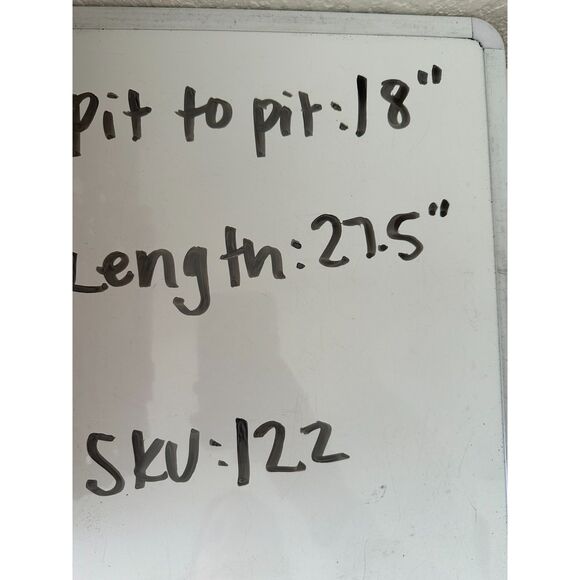 pit to pit:18"
Length:27.5"
SKU:122